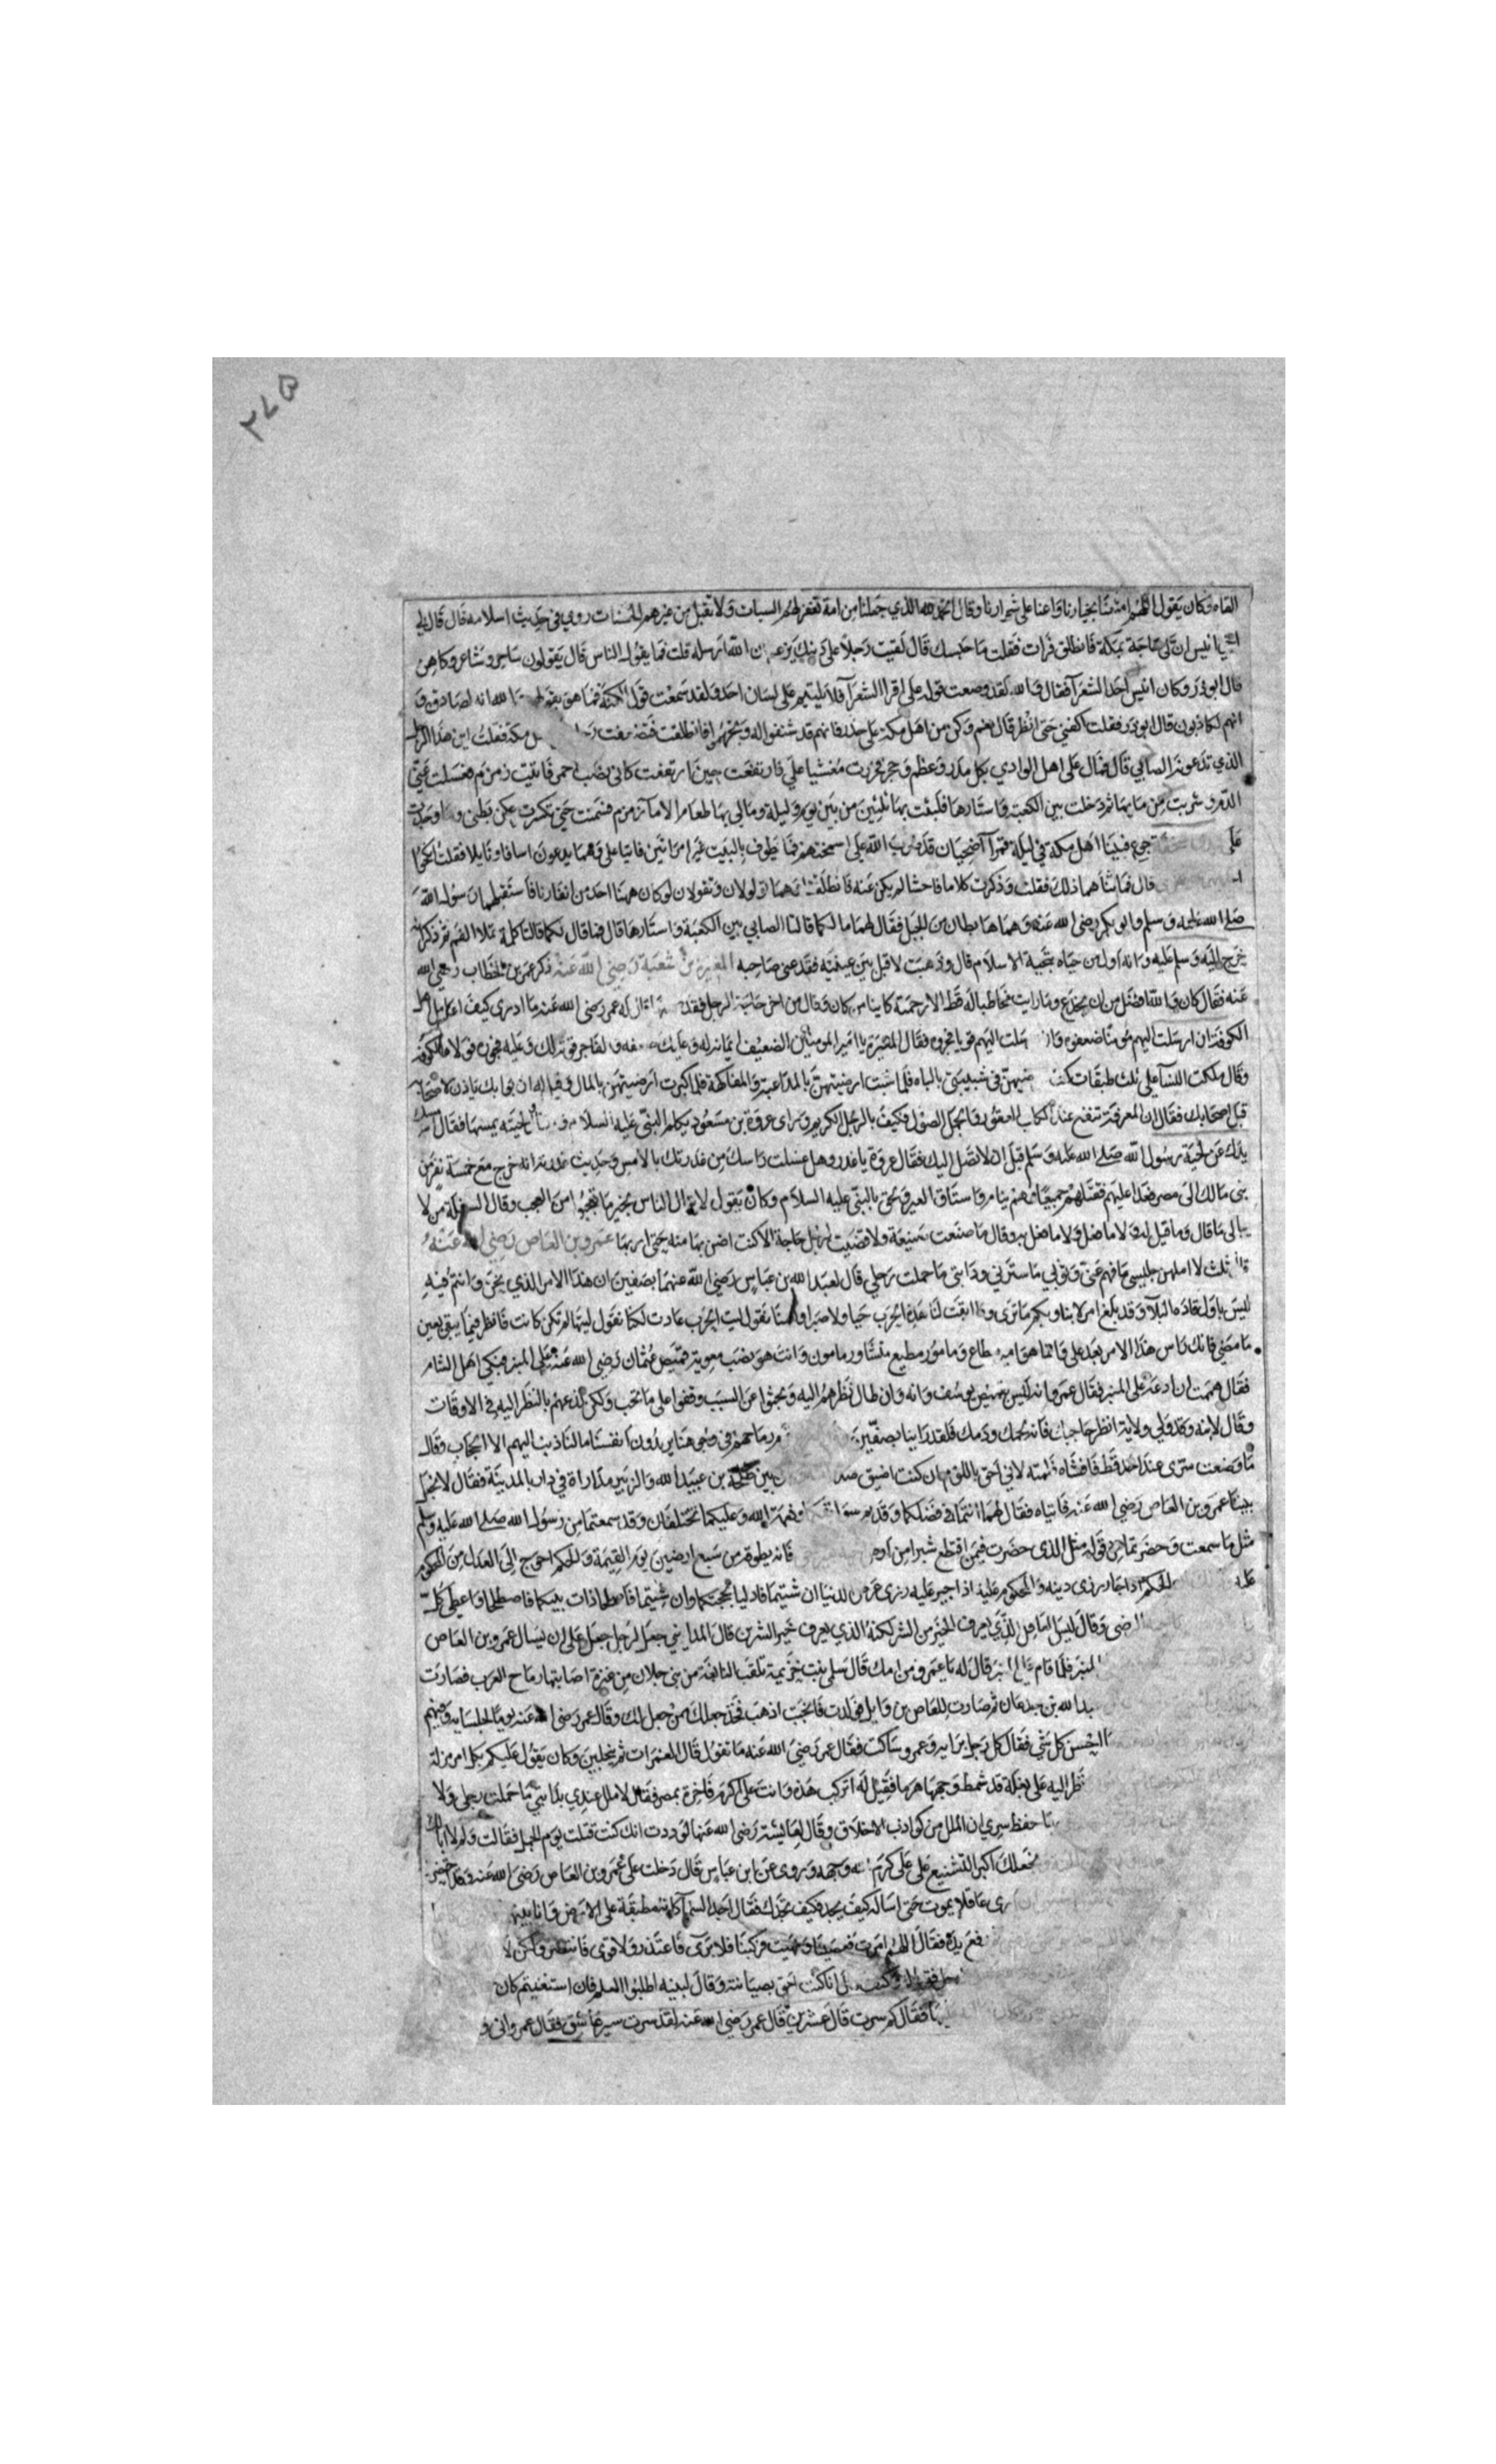 ٢٧٥
القاه وكان يقول اللهم امتنا بخيارنا واعنا على شرارنا وقال الحمد لله الذي جعلنا من امة تغفر لهم السيات ولا تقبل من غيرهم الحسنات روي في حديث اسلامه قال قال لي
انيس ان لي حاجة بمكة فانطلق فراث فقلت ما حبسك قال لقيت رجلا على دينك يزعم ان الله ارسله قلت فما يقول الناس قال يقولون ساحر وشاعر وكاهن
قال ابو ذر وكان انيس احد الشعرآ فقال والله لقد وضعت قوله على اقرا الشعرآ فلا يلتيم على لسان احد ولقد سمعت قول الكهنة فما هو بقولهم والله انه لصادق و
انهم لكاذبون قال ابو ذر فقلت اكفني حتى انظر قال نعم وكن من اهل مكة على حذر فانهم قد شنفوا له وتجهموا فانطلقت فتضعفت مكة فقلت اين هذا الرجل
الذي تدعونه الصابي قال فمال على اهل الوادي بكل مدر وعظم وحجر فخررت مغشيا علي فارتفعت حين ارتفعت كاني نصب احمر فاتيت زمزم فغسلت عني
الدم وشربت من مايها ثم دخلت بين الكعبة واستارها فلبثت بها ثلثين من بين يوم وليلة ومالي بها طعام الا مآ زمزم فسمنت حتى تكسرت عكن بطني وما وجدت
على جوع فبينا اهل مكة في ليلة قمرآ اضحيان قد ضرب الله على اسمختهم فما يطوف بالبيت غير امراتين فاتيا علي وهما يدعون اسافا ونايلا فقلت
قال فما ثناهما ذلك فقلت وذكرت كلاما فاحشا لم يكن عنه فانطلقتا وهما تولولان وتقولان لو كان ههنا احد من انفارنا فاستقبلهما رسول الله
صلى الله عليه وسلم وابو بكر رضي الله عنه وهما هابطان من الجبل فقال لهما ما لكما قالتا الصابي بين الكعبة واستارها قال فما قال لكما قالتا كلمة تملا الفم ثم ذكر
خرج اليه وسلم عليه وانه اول من حياه بتحية الاسلام قال وذهبت لاقبل بين عينيه فقدعني صاحبه المغيرة بن شعبة رضي الله عنه ذكر عمر بن الخطاب رضي الله
عنه فقال كان والله افضل من ان يخدع وما رايت مخاطبا له قط الا رحمته كاينا من كان وقال من اخر حاجة الرجل فقد قال له عمر رضي الله عنه ما ادري كيف اعامل اهل
الكوفة ان ارسلت اليهم مومنا ضعفوه وان ارسلت اليهم قويا فجروه فقال المغيرة يا امير المومنين الضعيف ايمانه له وعليك ضعفه والفاجر قوته لك وعليه فجوره فولاه الكوفة
وقال ملكت النسآ على ثلث طبقات كنت ارضيهن في شبيبتي بالباه فلما شبت ارضيتهن بالمداعبة والمفاكهة فلما كبرت ارضيتهن بالمال وقيل له ان بوابك ياذن لاصحابه
قبل اصحابك فقال ان المعرفة تنفع عند الكلب العقور والجمل الصؤل فكيف بالرجل الكريم وراى عروة بن مسعود يكلم النبي عليه السلام لحيته يمسها فقال امسك
يدك عن لحية رسول الله صلى الله عليه وسلم قبل ان لا تصل اليك فقال عروة يا غدر وهل غسلت راسك من غدرتك بالامس وحديث غدره انه خرج مع خمسة نفر من
بني مالك الى مصر فعدا عليهم فقتلهم جميعا وهم نيام واستاق العير ولحق بالنبي عليه السلام وكان يقول لا يزال الناس بخير ما تعجبوا من العجب وقال السفلة من لا
يبالي ما قال وما قيل له ولا ما فعل ولا ما فعل به وقال ما صنعت صنيعة ولا قضيت لرجل حاجة الا كنت اضن بها منه حتى اربها عمرو بن العاص رضي الله عنه
ثلث لا املهن جليسي ما فهم عني وثوبي ما سترني ودابتي ما حملت رحلي قال لعبد الله بن عباس رضي الله عنهما بصفين ان هذا الامر الذي نحن وانتم فيه
ليس باول امر قاده البلآ وقد بلغ الامر بنا وبكم ما ترى وما ابقت لنا هذه الحرب حيا ولا صبرا ولسنا نقول ليت الحرب عادت لكنا نقول ليتها لم تكن كانت فانظر فيما بقي بعين
ما مضى فانك راس هذا الامر بعد علي وانما هو امير مطاع ومامور مطيع مشاور مامون وانت هو نصب معوية قميص عثمان رضي الله عنه على المنبر فبكى اهل الشام
فقال هممت ان ادعه على المنبر فقال عمرو انه ليس بقميص يوسف وانه ان طال نظرهم اليه وبحثوا عن السبب وقفوا على ما تحب ولكن لذعهم بالنظر اليه في الاوقات
وقال لابنه وقد ولي ولاية انظر حاجبك فانه لحمك ودمك فلقد راينا بصفين رماحهم في وجوهنا يريدون انفسنا ما لنا ذنب اليهم الا الحجاب وقال
ما وضعت سري عند احد قط فافشاه فلمته لاني احق باللوم ان كنت اضيق صدرا بين طلحة بن عبيد الله والزبير مداراة في دار بالمدينة فقال لا نجعل
بيننا عمرو بن العاص رضي الله عنه فاتياه فقال لهما انتما في فضلكما وقديم سوابقكما ونعمة الله عليكما تختلفان وقد سمعتما من رسول الله صلى الله عليه وسلم
مثل ما سمعت وحضرتما من قوله مثل الذي حضرت فيمن اقتطع شبرا من ارض فانه يطوقه من سبع ارضين يوم القيمة والحكم احوج الى العدل من المحكوم
عليه الحكم اذا جار رزي دينه والمحكوم عليه اذا جير عليه رزي عرض الدنيا ان شيتما فادليا بحجتكما وان شيتما فاصلحا ذات بينكما فاصطلحا واعطى كل
الرضى وقال ليس العاقل الذي يعرف الخير من الشر لكنه الذي يعرف خير الشرين قال المدايني جعل لرجل جعل على ان يسال عمرو بن العاص
المنبر فلما قام على المنبر قال له يا عمرو من امك قال سلمى بنت خزيمة تلقب النابغة من بني جلان من عنزة اصابتها رماح العرب فصارت
عبد الله بن جدعان ثم صارت للعاص بن وايل فولدت فانجبت اذهب فخذ جعلك ممن جعل لك وقال عمر رضي الله عنه يوما لجلسايه وفيهم
احسن كل شي فقال كل رجل برايه وعمرو ساكت فقال عمر رضي الله عنه ما تقول قال الغمرات ثم ينجلين وكان يقول عليكم بكل امر مزلة
نظر اليه على بغلة قد شمط وجهها هرما فقيل له اتركب هذه وانت على اكرم فاخرة بمصر فقال لا ملل عندي بدابتي ما حملت رجلي ولا
ما حفظ سري ان الملل من كواذب الاخلاق وقال لعايشة رضي الله عنها لوددت انك كنت قتلت يوم الجمل فقالت ولم لا ابالك
نجعلك اكبر التشنيع على علي كرم الله وجهه وروى عن ابن عباس قال دخلت على عمرو بن العاص رضي الله عنه وقد احتضر
ارى عاقلا يموت حتى اساله كيف يجد فكيف تجدك فقال اجد السمآ كانها مطبقة على الارض وانا بينهما
رفع يده فقال اللهم امرت فعصينا ونهيت فركبنا فلا بري فاعتذر ولا قوي فانتصر ولكن لا
فقال انا كنت احق بصيانته وقال لبنيه اطلبوا العلم فان استغنيتم كان
فقال كم سرت قال عشرين قال عمر رضي الله عنه لقد سرت سير عاشق فقال عمرو اني و